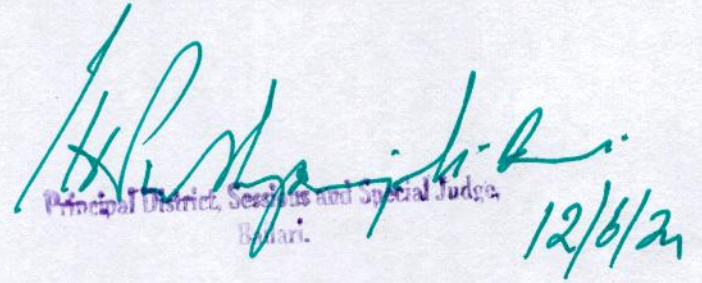 Principal District, Sessions and Special Judge,
Ballari.
12/6/24